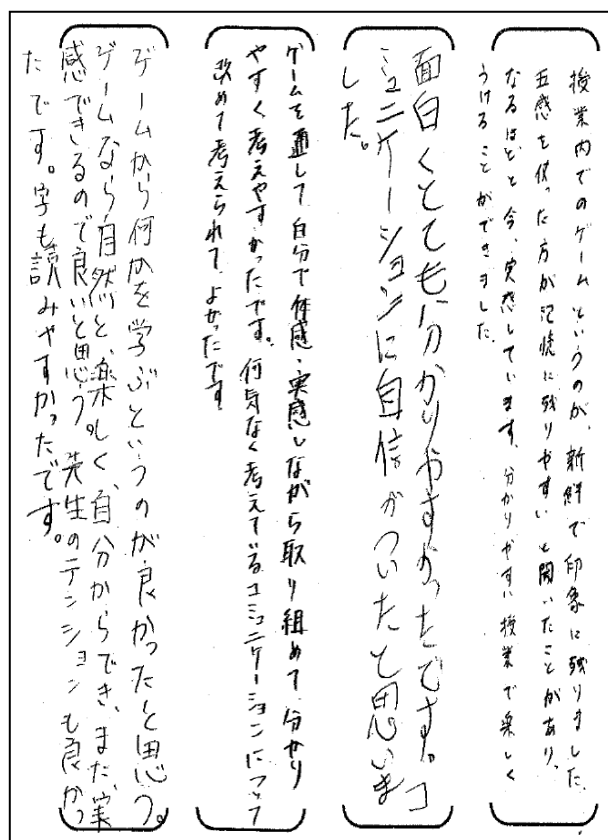 授業内でのゲームというのが、新鮮で印象に残りました。
五感を使った方が記憶に残りやすいと聞いたことがあり、
なるほどと今、実感しています。分かりやすい授業で楽しく
うけることができました。
面白くとても分かりやすかったです。コ
ミュニケーションに自信がついたと思いま
した。
ゲームを通して、自分で体感・実感しながら取り組めて、分かり
やすく考えやすかったです。何気なく考えているコミュニケーションについて
改めて考えられて、よかったです。
ゲームから何かを学ぶというのが良かったと思う。
ゲームなら自然と、楽しく、自分からでき、また、実
感できるので良いと思う。先生のテンションも良かっ
たです。字も読みやすかったです。